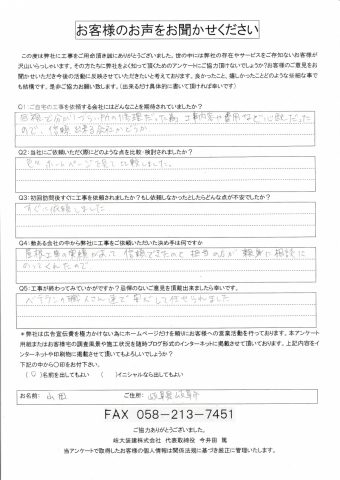 お客様のお声をお聞かせください
この度は弊社に工事をご用命頂き誠にありがとうございました。世の中には弊社の存在やサービスをご存知ないお客様が
沢山いらっしゃいます。その方たちに弊社をよく知って頂くためのアンケートにご協力頂けないでしょうか?お客様のご意見をお
聞かせいただき今後の活動に反映させていただきたいと考えております。良かったこと、嬉しかったことどのような些細な事で
も結構です。是非ご協力お願い致します。(出来るだけ具体的に書いて頂ければ幸いです)
Q1:ご自宅の工事を依頼する会社にはどんなことを期待されていましたか?
屋根で分かりづらい所の修理だった為 工事内容や費用など心配だった
ので、信頼出来る会社かどうか
Q2:当社にご依頼いただく際にどのような点を比較・検討されましたか?
色々ホームページを見て比較しました。
Q3:初回訪問後すぐに工事を依頼されましたか?もし依頼しなかったとしたらどんな点が不安でしたか?
すぐに依頼しました
Q4:数ある会社の中から弊社に工事をご依頼いただいた決め手は何ですか
屋根工事の実績があって 信頼できたので 担当の方が 親身に相談に
のってくれたので
Q5:工事が終わってみていかがですか?忌憚のないご意見を頂戴出来ましたら幸いです。
ベテランの職人さん達で安心して任せられました
*弊社は広告宣伝費を極力かけない為にホームページだけを頼りにお客様への営業活動を行っております。本アンケート
用紙またはお客様宅の調査風景や施工状況を随時ブログ形式のインターネットに掲載させて頂いております。上記内容をイ
ンターネットや印刷物に掲載させて頂いてもよろしいでしょうか?
下記の中から○印をお付下さい。
(○)名前を出してもよい ( )イニシャルなら出してもよい
お名前: 山田 ご住所: 岐阜県岐阜市
FAX 058-213-7451
ご協力ありがとうございました。
岐大装建株式会社 代表取締役 今井田 篤
当アンケートで取得したお客様の個人情報は関係法規に基づき厳正に管理いたします。